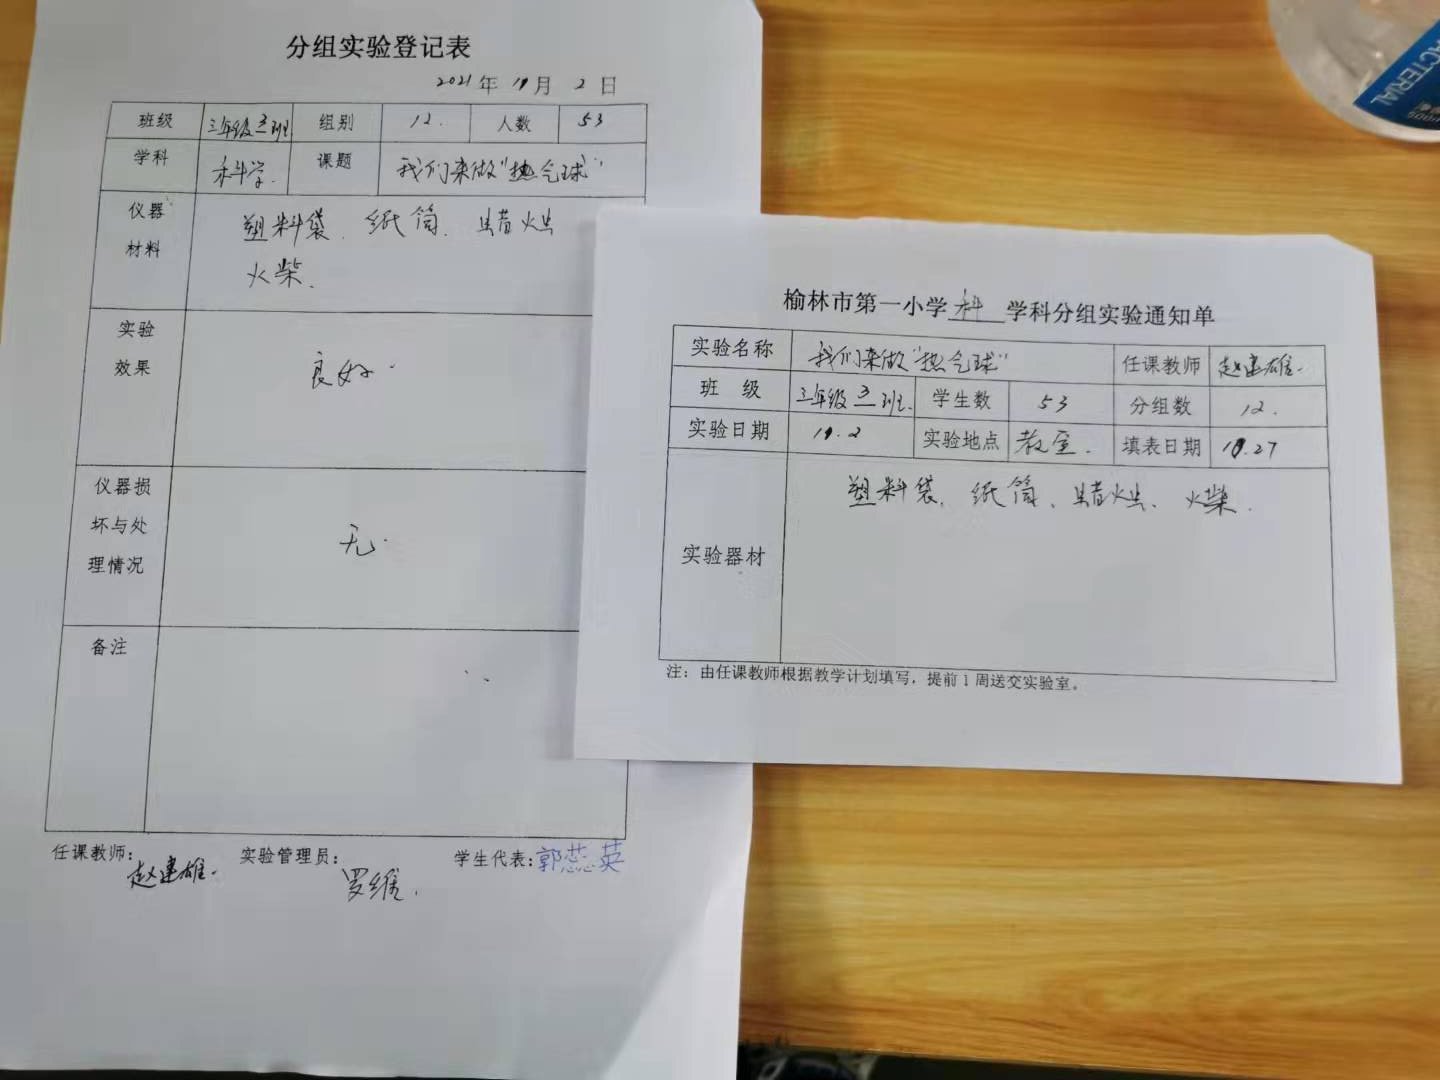 分组实验登记表
2021年11月2日
班级 三年级三班 组别 12. 人数 53
学科 科学. 课题 我们来做"热气球"
仪器材料 塑料袋、纸筒、蜡烛
火柴.
实验效果 良好.
仪器损坏与处理情况 无.
备注
任课教师: 赵建雄. 实验管理员: 罗维. 学生代表: 郭蕊英
榆林市第一小学科学科分组实验通知单
实验名称 我们来做"热气球" 任课教师 赵建雄.
班 级 三年级三班. 学生数 53 分组数 12.
实验日期 11.2 实验地点 教室. 填表日期 10.27
实验器材 塑料袋、纸筒、蜡烛、火柴.
注：由任课教师根据教学计划填写，提前1周送交实验室。
ACTERIAL